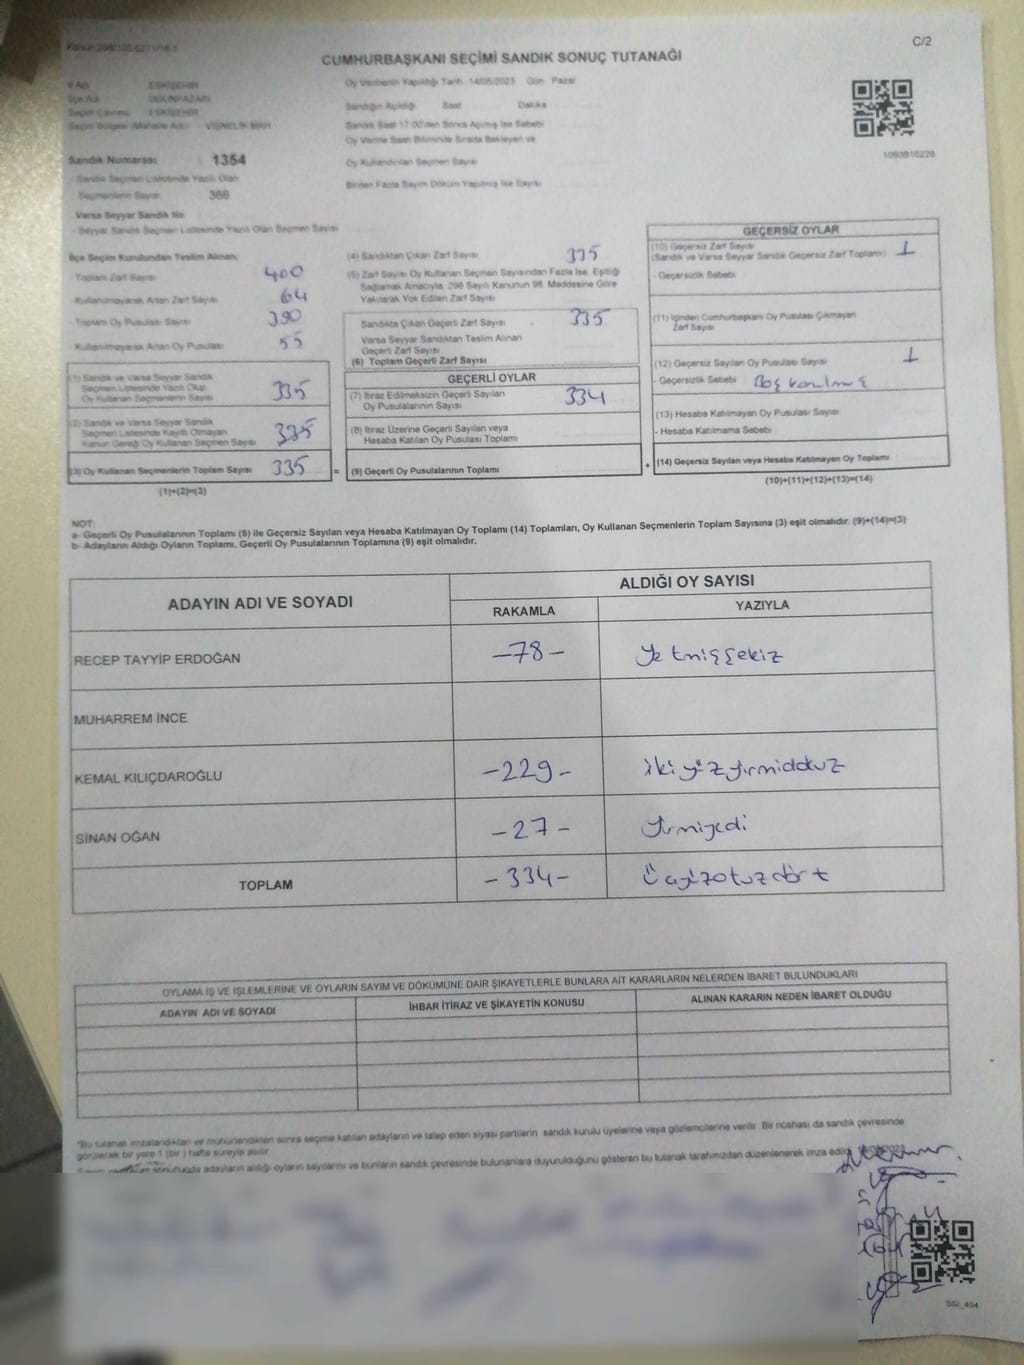 Kanun:298/105,6271/18-1
C/2
CUMHURBAŞKANI SEÇİMİ SANDIK SONUÇ TUTANAĞI
İl Adı : ESKİŞEHİR
İlçe Adı : ODUNPAZARI
Seçim Çevresi : ESKİŞEHİR
Seçim Bölgesi (Mahalle Adı) : VİŞNELİK MAH.
Sandık Numarası : 1354
- Sandık Seçmen Listesinde Yazılı Olan
Seçmenlerin Sayısı 366
Varsa Seyyar Sandık No
- Seyyar Sandık Seçmen Listesinde Yazılı Olan Seçmen Sayısı
Oy Vermenin Yapıldığı Tarih 14/05/2023 Gün Pazar
Sandığın Açıldığı Saat Dakika
Sandık Saat 17:00'den Sonra Açılmış İse Sebebi
Oy Verme Saati Bitiminde Sırada Bekleyen ve
Oy Kullandırılan Seçmen Sayısı
Birden Fazla Sayım Döküm Yapılmış İse Sayısı
1093816226
İlçe Seçim Kurulundan Teslim Alınan;
Toplam Zarf Sayısı 400
- Kullanılmayarak Artan Zarf Sayısı 64
- Toplam Oy Pusulası Sayısı 390
- Kullanılmayarak Artan Oy Pusulası 55
(1) Sandık ve Varsa Seyyar Sandık
Seçmen Listesinde Yazılı Olup
Oy Kullanan Seçmenlerin Sayısı 335
(2) Sandık ve Varsa Seyyar Sandık
Seçmen Listesinde Kayıtlı Olmayan
Kanun Gereği Oy Kullanan Seçmen Sayısı 335
(3) Oy Kullanan Seçmenlerin Toplam Sayısı 335 =
(1)+(2)=(3)
(4) Sandıktan Çıkan Zarf Sayısı 335
(5) Zarf Sayısı Oy Kullanan Seçmen Sayısından Fazla İse, Eşitliği
Sağlamak Amacıyla, 298 Sayılı Kanunun 98. Maddesine Göre
Yakılarak Yok Edilen Zarf Sayısı
Sandıkta Çıkan Geçerli Zarf Sayısı 335
Varsa Seyyar Sandıktan Teslim Alınan
Geçerli Zarf Sayısı
(6) Toplam Geçerli Zarf Sayısı
GEÇERLİ OYLAR
(7) İtiraz Edilmeksizin Geçerli Sayılan
Oy Pusulalarının Sayısı 334
(8) İtiraz Üzerine Geçerli Sayılan veya
Hesaba Katılan Oy Pusulası Toplamı
(9) Geçerli Oy Pusulalarının Toplamı +
GEÇERSİZ OYLAR
(10) Geçersiz Zarf Sayısı 1
(Sandık ve Varsa Seyyar Sandık Geçersiz Zarf Toplamı)
- Geçersizlik Sebebi
(11) İçinden Cumhurbaşkanı Oy Pusulası Çıkmayan
Zarf Sayısı
(12) Geçersiz Sayılan Oy Pusulası Sayısı 1
- Geçersizlik Sebebi Boş konulmuş
(13) Hesaba Katılmayan Oy Pusulası Sayısı
- Hesaba Katılmama Sebebi
(14) Geçersiz Sayılan veya Hesaba Katılmayan Oy Toplamı
(10)+(11)+(12)+(13)=(14)
NOT:
a- Geçerli Oy Pusulalarının Toplamı (9) ile Geçersiz Sayılan veya Hesaba Katılmayan Oy Toplamı (14) Toplamları, Oy Kullanan Seçmenlerin Toplam Sayısına (3) eşit olmalıdır. (9)+(14)=(3)
b- Adayların Aldığı Oyların Toplamı, Geçerli Oy Pusulalarının Toplamına (9) eşit olmalıdır.
ADAYIN ADI VE SOYADI
ALDIĞI OY SAYISI
RAKAMLA YAZIYLA
RECEP TAYYİP ERDOĞAN -78- Yetmişsekiz
MUHARREM İNCE
KEMAL KILIÇDAROĞLU -229- ikiyüzyirmidokuz
SİNAN OĞAN -27- Yirmiyedi
TOPLAM -334- Üçyüzotuzdört
OYLAMA İŞ VE İŞLEMLERİNE VE OYLARIN SAYIM VE DÖKÜMÜNE DAİR ŞİKAYETLERLE BUNLARA AİT KARARLARIN NELERDEN İBARET BULUNDUKLARI
ADAYIN ADI VE SOYADI İHBAR İTİRAZ VE ŞİKAYETİN KONUSU ALINAN KARARIN NEDEN İBARET OLDUĞU
"Bu tutanak imzalandıktan ve mühürlendikten sonra seçime katılan adayların ve talep eden siyasi partilerin sandık kurulu üyelerine veya gözlemcilerine verilir. Bir nüshası da sandık çevresinde
görülecek bir yere 1 (bir) hafta süreyle asılır.
sonucunda adayların aldığı oyların sayılarını ve bunların sandık çevresinde bulunanlara duyurulduğunu gösteren bu tutanak tarafımızdan düzenlenerek imza edildi.